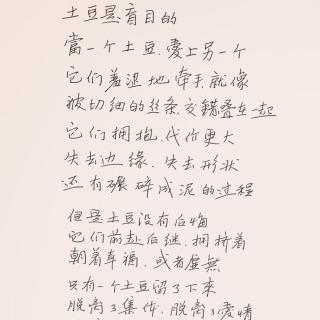 土豆是盲目的
當一个土豆.愛上另一个
它们羞涩地牽手就像
被切细的丝条交錯叠在一起
它们拥抱.代价更大
失去边缘.失去形状
还有碾碎成泥的过程
但是土豆没有后悔
它们前赴后继.拥挤着
朝着幸福.或者虚無
只有一个土豆留了下來
脱离了集体.脱离了爱情